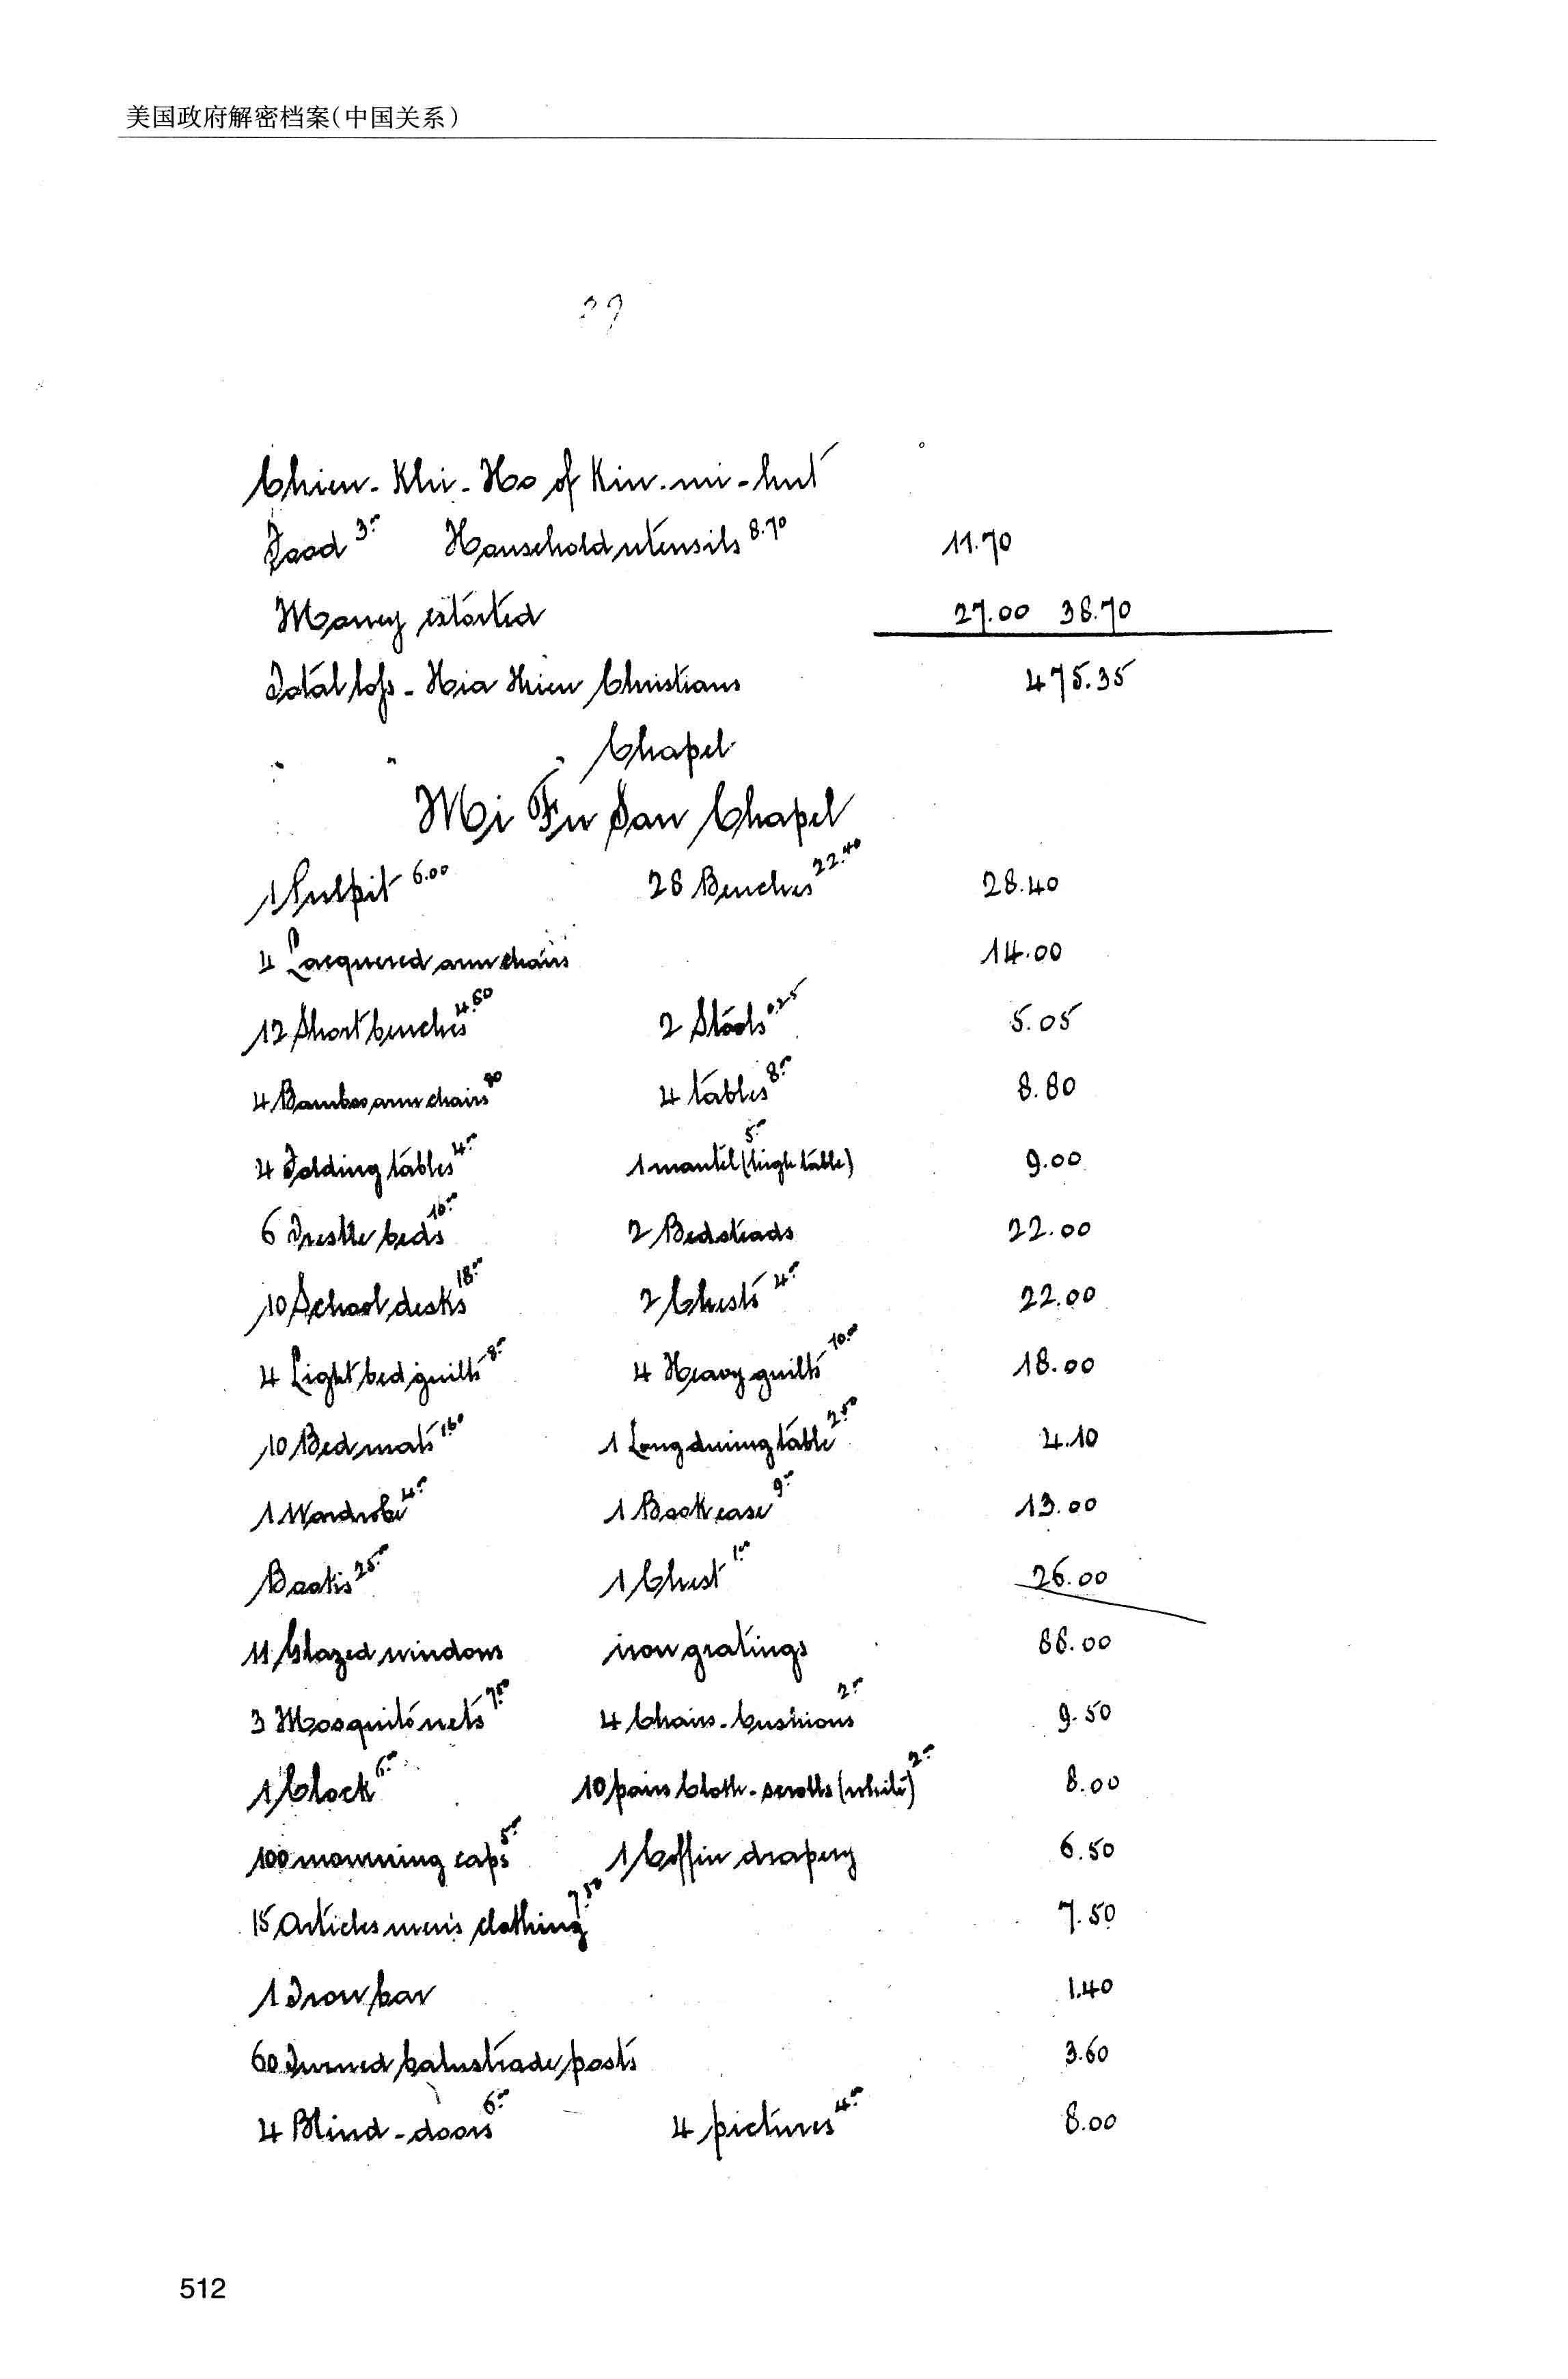 美国政府解密档案(中国关系)
Chien-Khi-Ho of Kin-mi-hut
Food 3.– Household utensils 8.70 11.70
Money extorted 27.00 38.70
Total loss - Hia Hien Christians 475.35
" " " Chapel
Mi Fu San Chapel
1 Pulpit 6.00 28 Benches 22.40 28.40
4 Lacquered arm chairs 14.00
12 Short benches 4.80 2 Stools 0.25 5.05
4 Bamboo arm chairs 80 4 tables 8.– 8.80
4 Folding tables 4.– 1 mantel (high table) 5.– 9.00
6 Trestle beds 16.– 2 Bedsteads 22.00
10 School desks 18.– 2 Chests 4.– 22.00
4 Light bed quilts 8.– 4 Heavy quilts 10.00 18.00
10 Bed mats 1.60 1 Long dining table 2.50 4.10
1 Wardrobe 4.– 1 Book case 9.– 13.00
Books 25.– 1 Chest 1.– 26.00
11 Glazed windows iron gratings 88.00
3 Mosquito nets 7.50 4 Chairs-Cushions 2.– 9.50
1 Clock 6.– 10 pairs Cloth-scrolls (white) 2.– 8.00
100 mourning caps 5.– 1 Coffin drapery 6.50
15 Articles men's clothing 7.50 7.50
1 Iron bar 1.40
60 Turned balustrade posts 3.60
4 Blind-doors 6.– 4 pictures 4.– 8.00
512